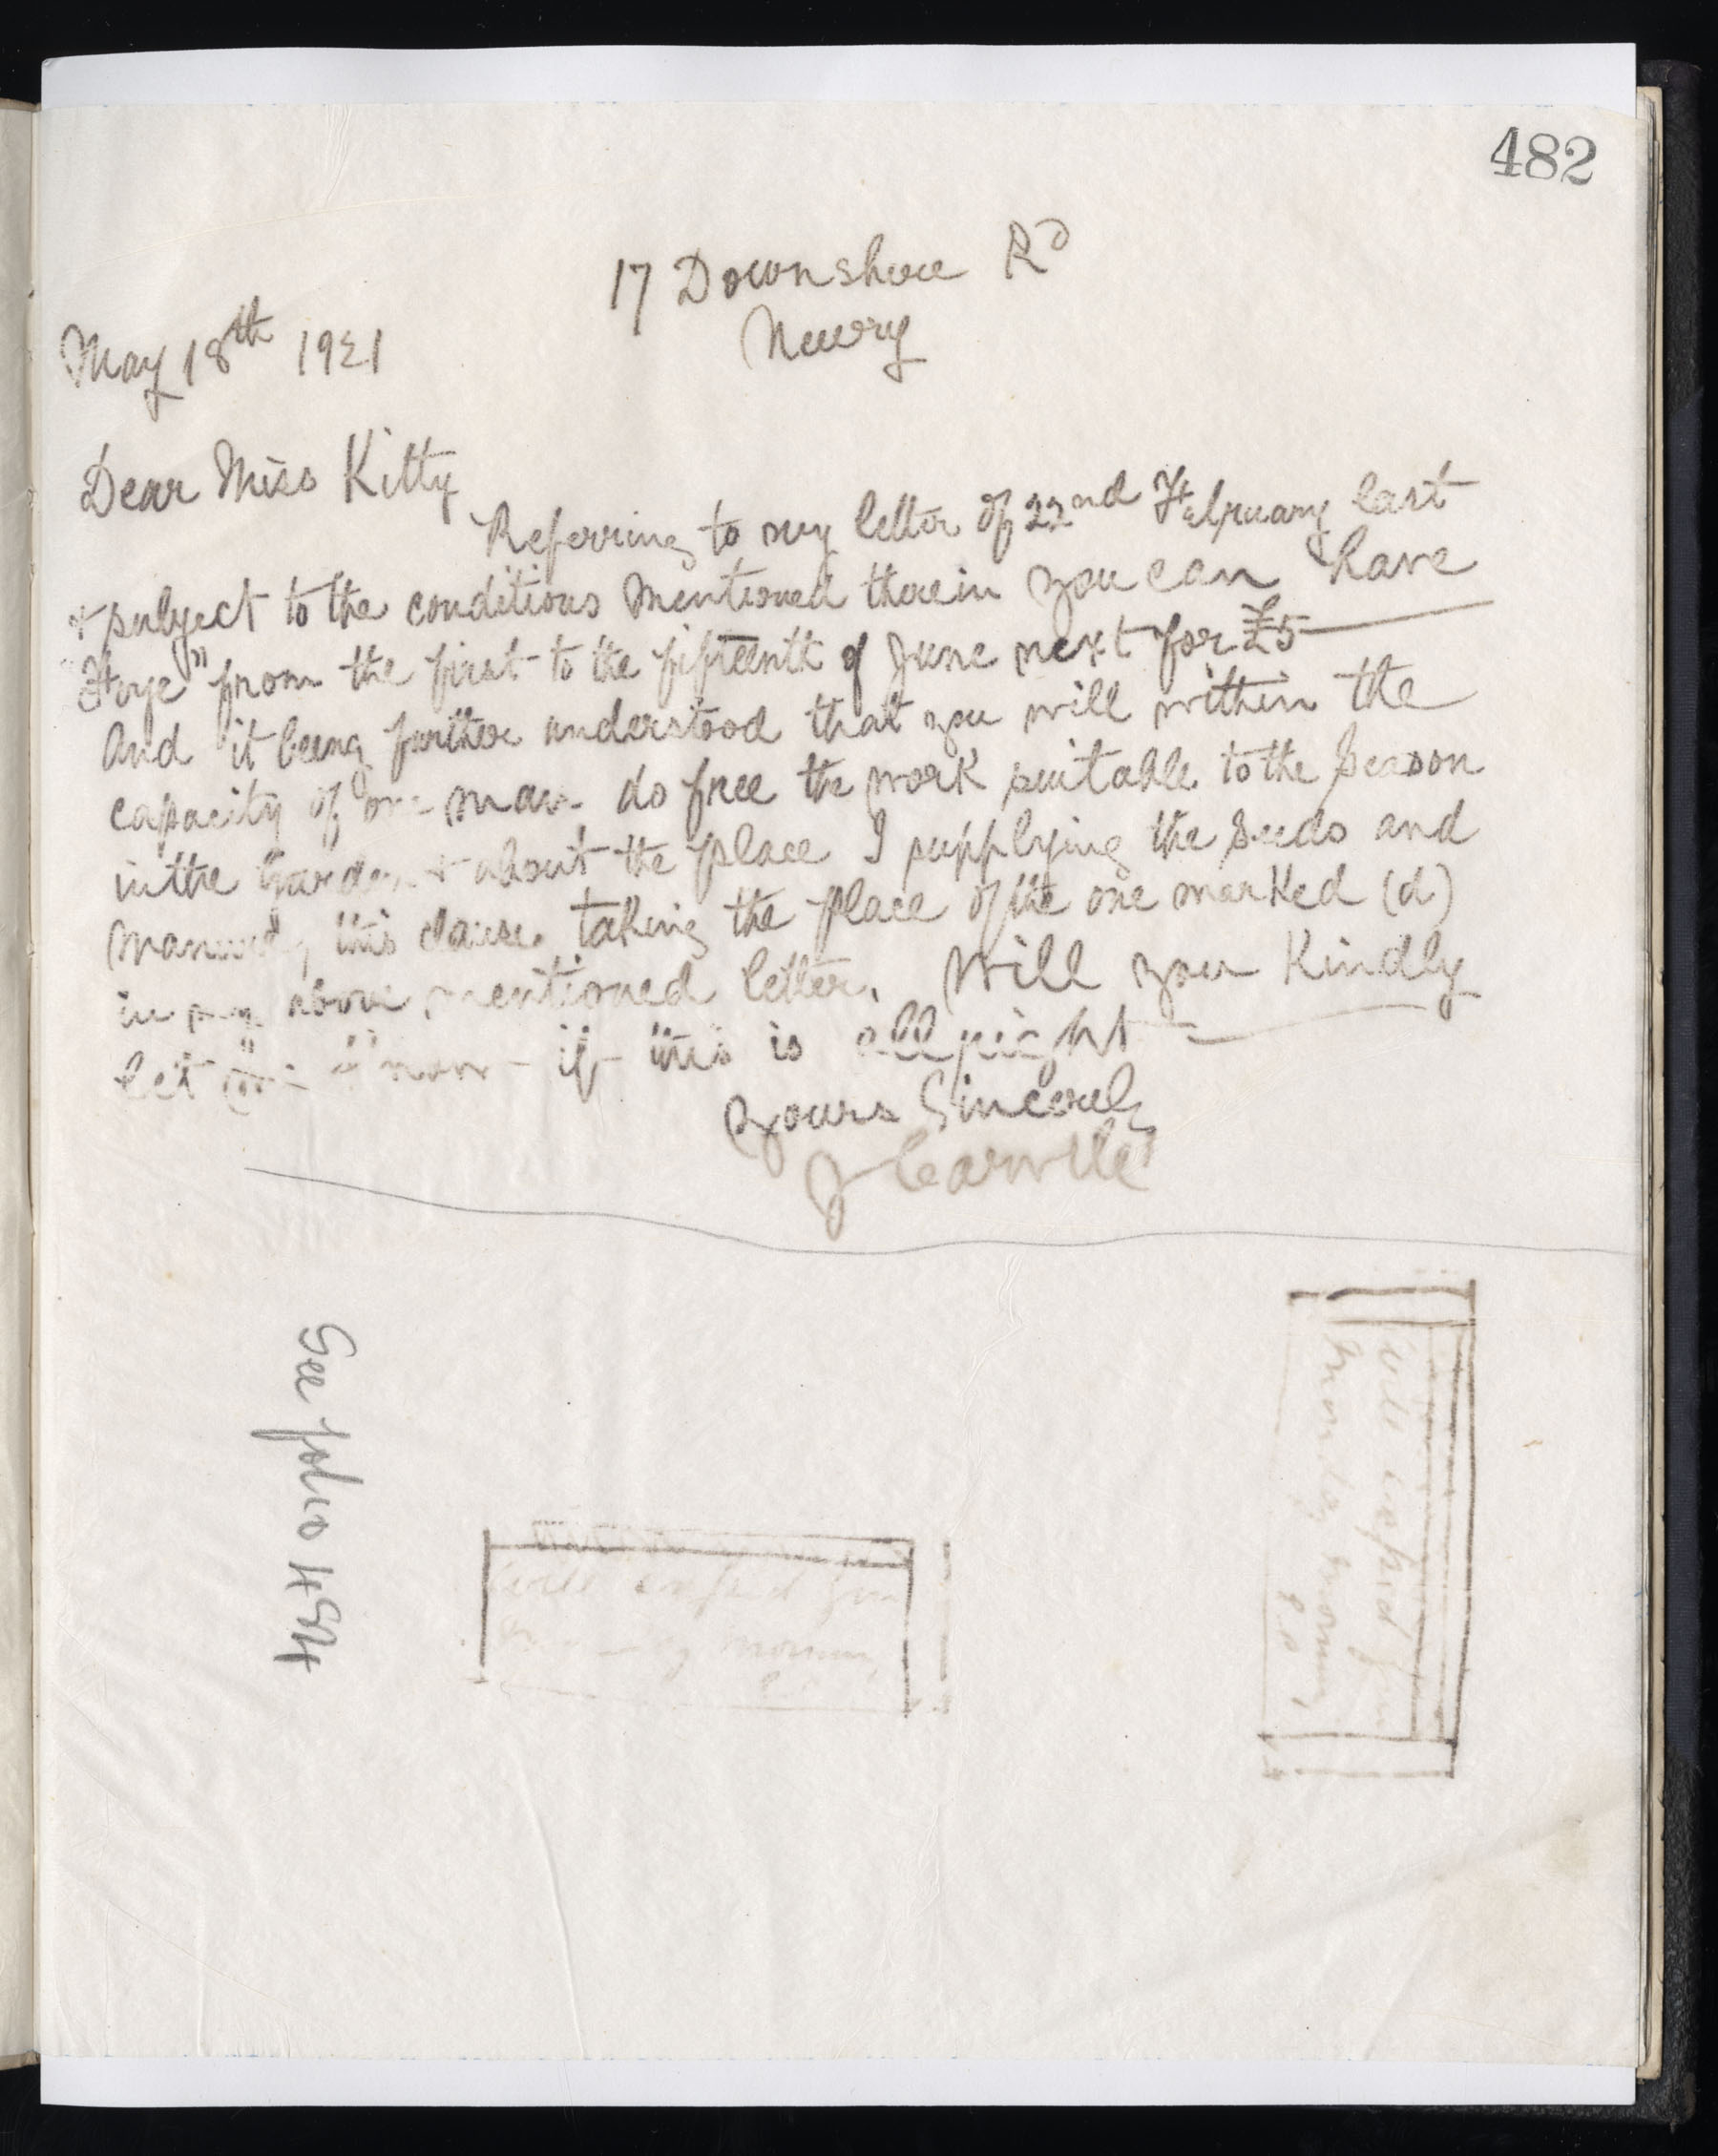 482
17 Downshire Rd
Newry
May 18th 1921
Dear Miss Kitty
Referring to my letter of 22nd February last
& subject to the conditions mentioned therein you can have
" from the first to the fifteenth of June next for £5
And it being further understood that you will within the
capacity of one man do free the work suitable to the season
in the Garden & about the place I supplying the seeds and
this clause taking the place of the one marked (d)
in my above mentioned letter. Will you Kindly
let me know if this is all right
Yours Sincerely
J Carvill
See folio 484